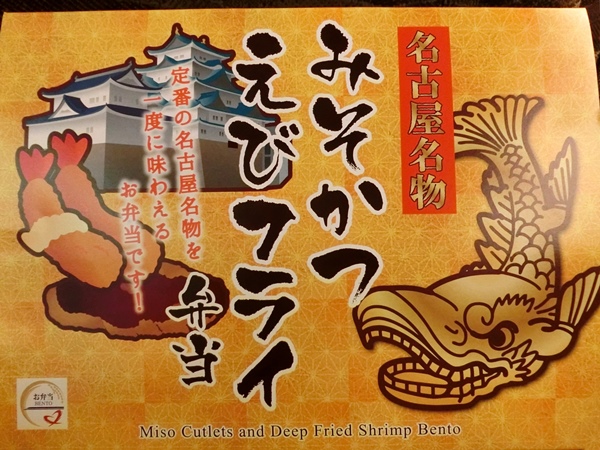 名古屋名物
みそかつ
えびフライ
弁当
定番の名古屋名物を
一度に味わえる
お弁当です！
お弁当
BENTO
Miso Cutlets and Deep Fried Shrimp Bento